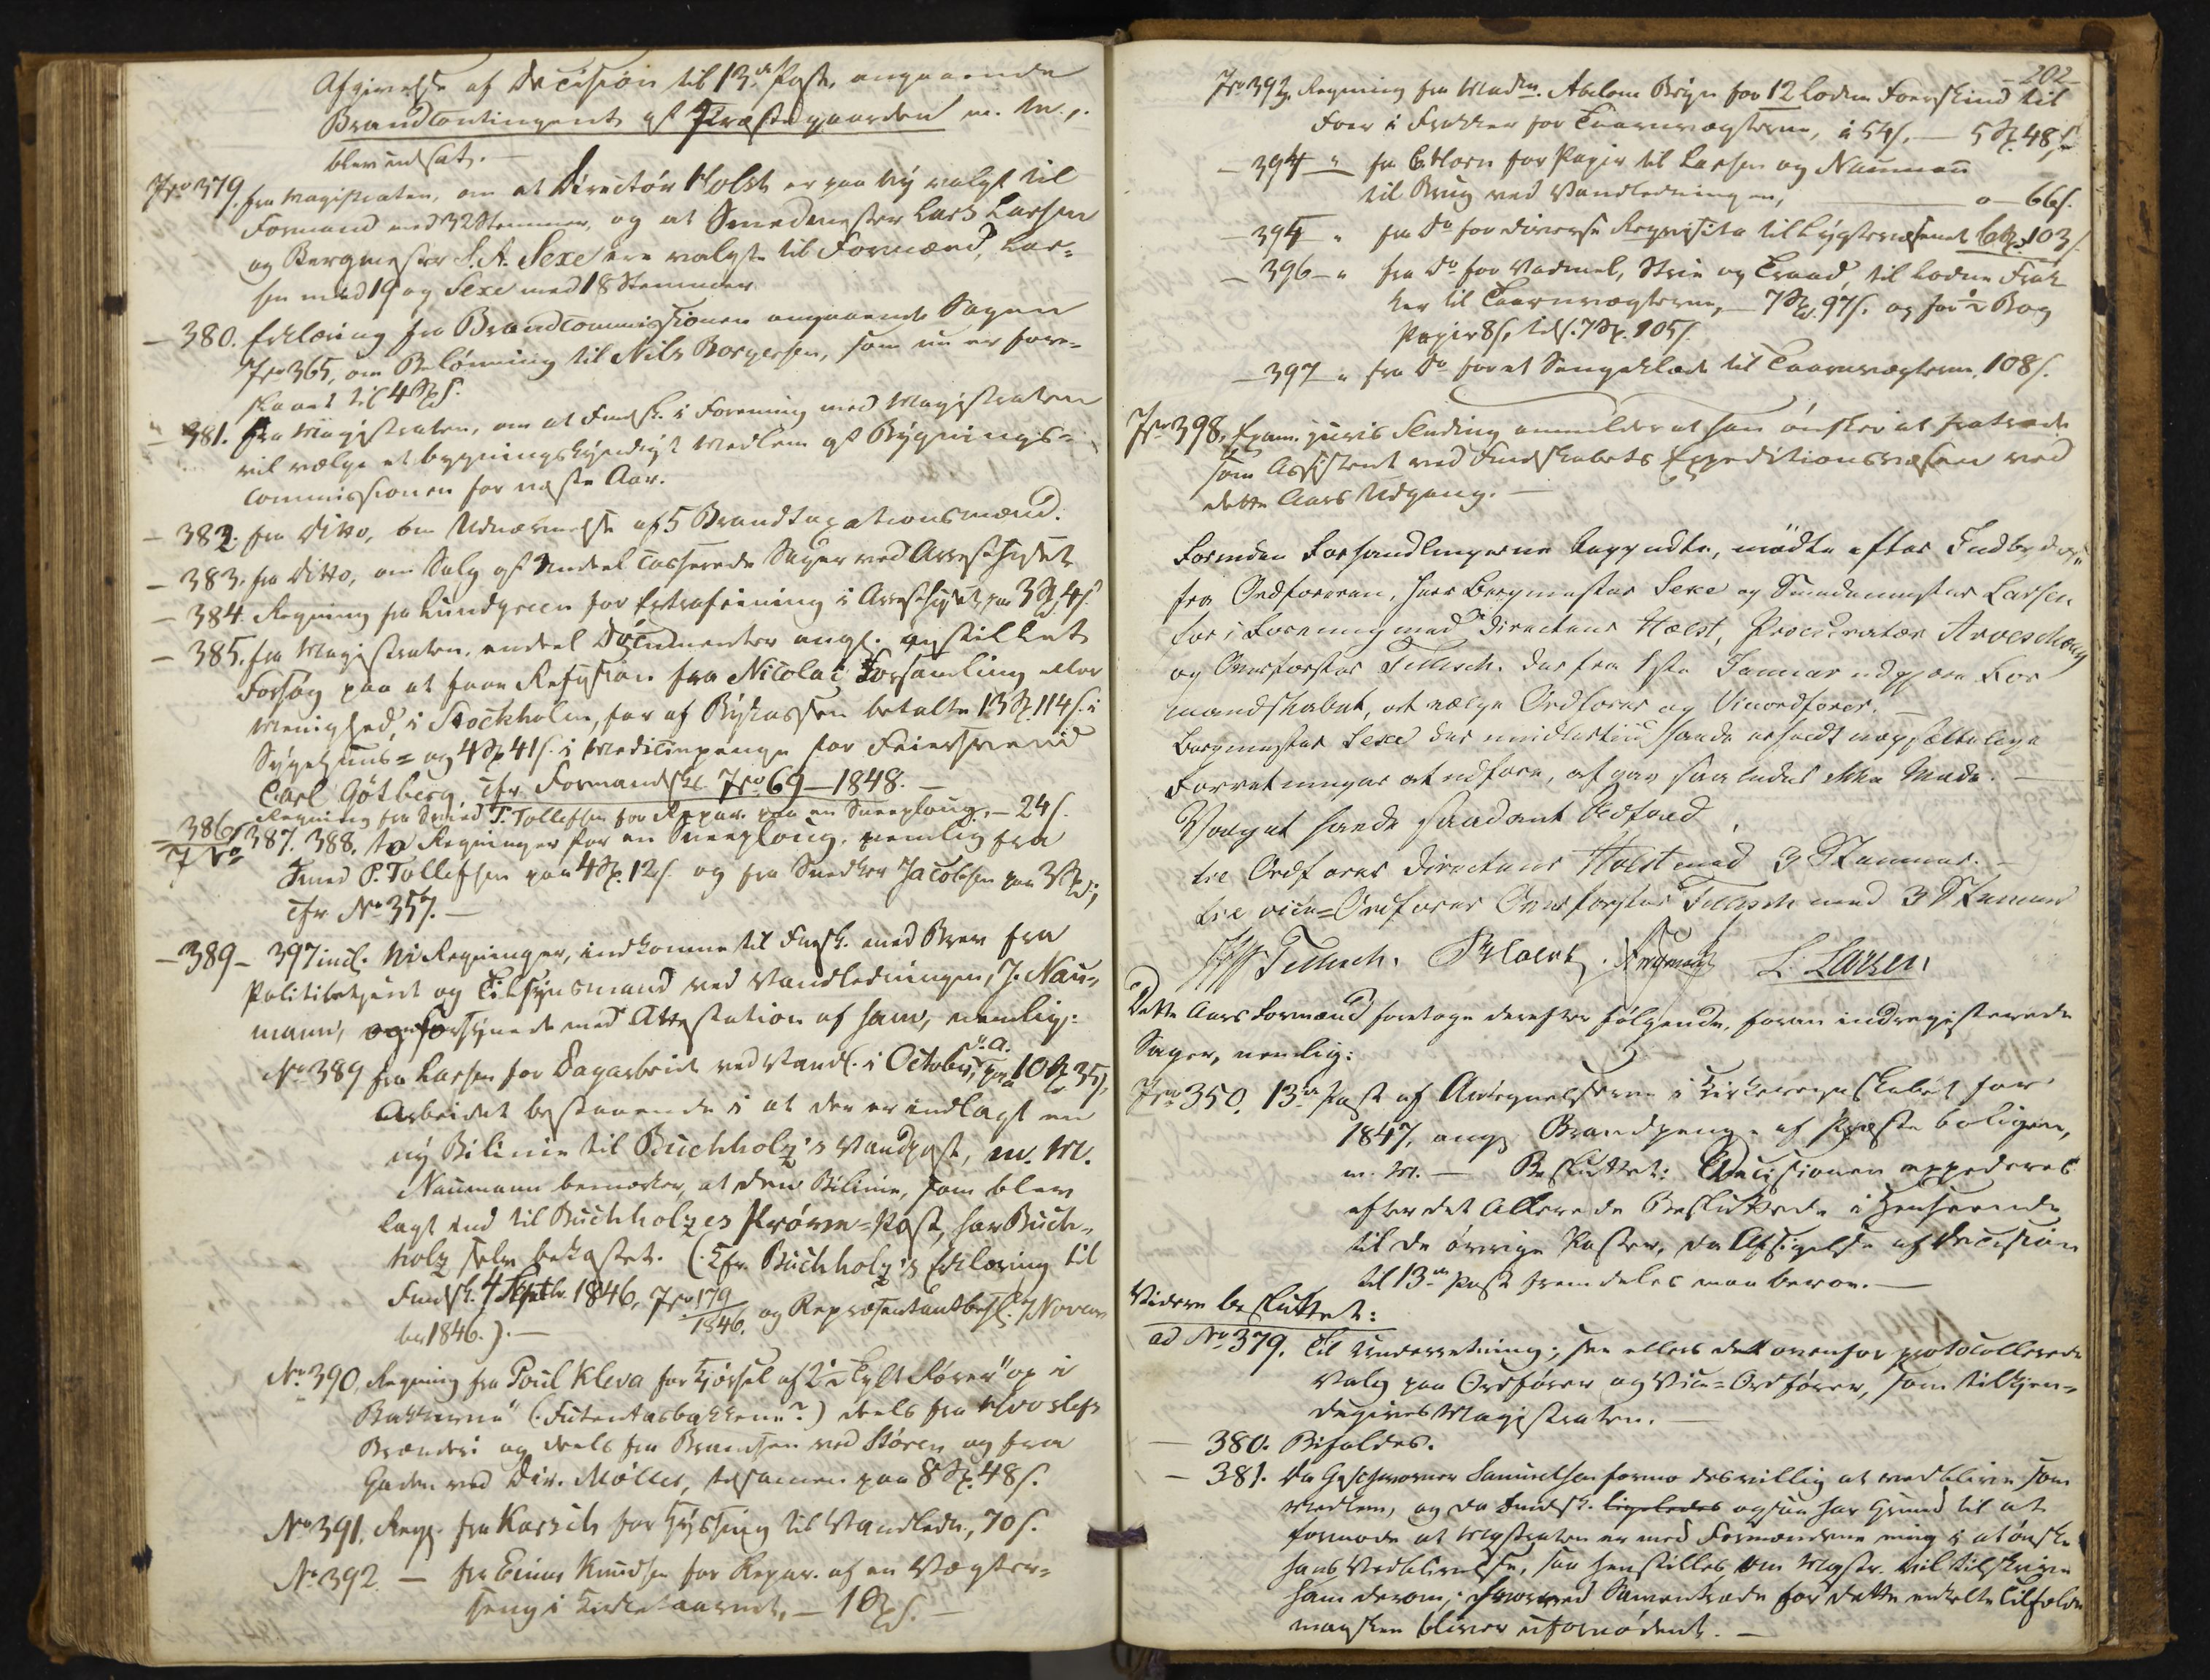 Afgivelse af Decision til 13de Post, angaaende
Brandcontingent af Præstegaarden m. M.,
blev udsat. —
Jr No 379. fra Magistraten, om at Directør Holst er paa Ny valgt til
Formand med 32 Stemmer, og at Smedmester Lars Larsen
og Bergmester S. A. Sexe ere valgte til Formænd, Lar-
sen med 19 og Sexe med 18 Stemmer.
— 380. Erklæring fra Brandcommissionen angaaende Sagen
Jr No 365, om Belønning til Nils Borgersen, som nu er fore-
slaaet til 4 Spd.
— 381. fra Magistraten, om at Fmdsk. i Forening med Magistraten
vil vælge et bygningskyndigt Medlem af Bygnings-
commissionen for næste Aar.
— 382. fra Ditto, om Udnævnelse af 5 Brandtaxationsmænd.
— 383. fra Ditto, om Salg af endeel casserede Sager ved Arresthuset
— 384. Regning fra Lundgreen for Extrafeining i Arresthuset paa 3 Spd 4 s.
— 385. fra Magistraten, endeel Documenter angl. anstillet
Forsøg paa at faae Refusion fra Nicolai Forsamling eller
Menighed, i Stockholm, for af Bykassen betalte 13 Sp. 114 s. i
Sygehuus- og 4 Sp 41 s. i Medicinpenge for Feiersvend
Carl Götberg, cfr Formandsk. Jr No 69 — 1848. —
386. Regning fra Smed P. Tollefsen for Repar. paa en Sneeploug. — 24 s.
Jr No 387. 388. to Regninger for en Sneeploug, nemlig fra
Smed P. Tollefsen paa 4 Sp. 12 s. og fra Snedker Jacobsen paa 3 Spd;
cfr No 357. —
— 389 — 397 incl. Ni Regninger, indkomne til Fmsk. med Brev fra
Politibetjent og Tilsynsmand ved Vandledningen, J. Nau-
mann, og forsynede med Attestation af ham, nemlig:
No 389 fra Larsen for Dagarbeide ved Vandl. i October d. A. paa 10 Sp 35 s,
Arbeidet bestaaende i at der er indlagt en
ny Bilinie til Buchholz's Vandpost, m. M.
Naumann bemærker, at den Bilinie, som blev
lagt ind til Buchholzes Prøve-Post, har Buch-
holz selv bekostet. (Cfr. Buchholz's Erklæring til
Fmdsk. 4 Septbr. 1846, Jr No 179/1846. og Repræsentantbesl. 7 Novem
ber 1846.). —
No 390, Regning fra Poul Kleva for Kjørsel af 2½ Tylt Rører "op i
Bakkerne" (Futentasbakkene?) deels fra
Brænderi og deels fra Bruunsen ved Støren og fra
Gaden ved Dir. Møller, tilsammen paa 8 Sp. 48 s.
No 391. Regn. fra Karsch for Hyssing til Vandledn., 70 s.
No 392. — fra Einar Knudsen for Repar. af en Vægter-
seng i Kirketaarnet, — 1 Spd. —
202
Jr No 393. Regning fra Madm. Abelone Bryn for 12 lodne Foerskind til
Foer i Frakker for Taarnvægterne, à 54 s. — 5 Sp. 48 s.
— 394 " fra C. Horn for Papir til Larsen og Naumann
til Brug ved Vandledningen, — o — 66 s.
— 395 " fra Do for diverse Reqvisita til Lygtevæsenet 6 Sp. 103 s.
— 396 — " fra Do for Vadmel, Strie og Traad, til lodne Frak
ker til Taarnvægterne, — 7 Sp. 97 s. og for ½ Bog
Papir 8 s, tils. 7 Sp. 105 s.
— 397 — " fra Do for et Sengeklæde til Taarnvægterne, 108 s.
Jr No 398. Exam. juris Sleding anmelder at han ønsker at fratræde
som Assistent ved Fmdskabets Expeditionsvæsen ved
dette Aars Udgang. —
Forinden Forhandlingerne begyndte, mødte efter Indbydelse
fra Ordføreren, Herr Bergmester Sexe og Smedemester Larsen
for i Forening med Directeur Holst, Procurator Aroeschoug
og Overforster Tellisch, der fra 1ste Januar udgjøre For
mandskabet, at vælge Ordfører og Viceordfører. —
Bergmester Sexe der imidlertid havde erholdt uopsættelige
Forretninger at udføre, af gav saaledes ikke Møde. —
Valget havde saadant Udfald
til Ordfører Directeur Holst med 3 Stemmer. —
til vice-Ordfører Overforster Tellisch med 3 Stemmer
Tellisch. Holst. L. Larsen.
Dette Aars Formænd foretoge derefter følgende, foran indregisterede
Sager, nemlig:
Jr No 350. 13de Post af Antegnelserne i Kirkeregnskabet for
1847, angl. Brandpenge af Præsteboligen,
m. M. — Besluttet: Decisionen expederes
efter det allerede Besluttede i Henseende
til de øvrige Poster, da Afsigelse af Decision
til 13de Post fremdeles maa beroe. —
Videre besluttet:
ad No 379. Til Underretning; see ellers det ovenfor protocollerede
Valg paa Ordfører og Vice-Ordfører, som tilkjen-
degives Magistraten. —
— 380. Bifaldes.
— 381. Da Geschworner Samuelsen formodes villig at vedblive som
Medlem, og da Fmdsk. ligeledes ogsaa har Grund til at
formode at Magstraten er med Formændene enig i at ønske
hans Vedblivelse, saa henstilles, om Magstr. vil tilskrive
ham derom; hvorved Sammentræde for dette enkelte Tilfælde
maaskee bliver ufornødent. —